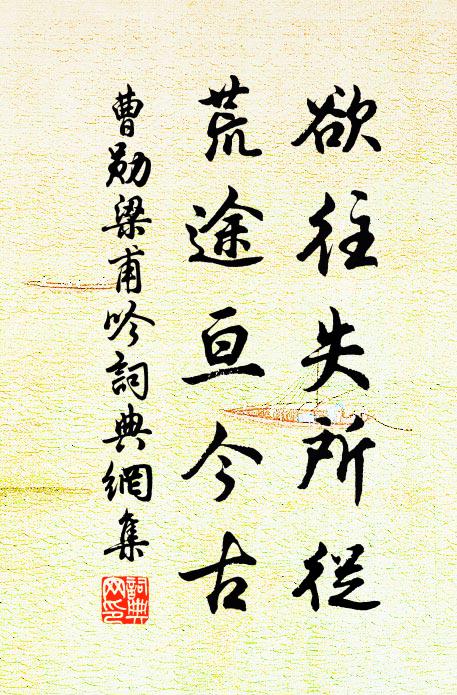 欲往失所從
荒途亘今古
曹勛梁甫吟詞典網集
詞典网印